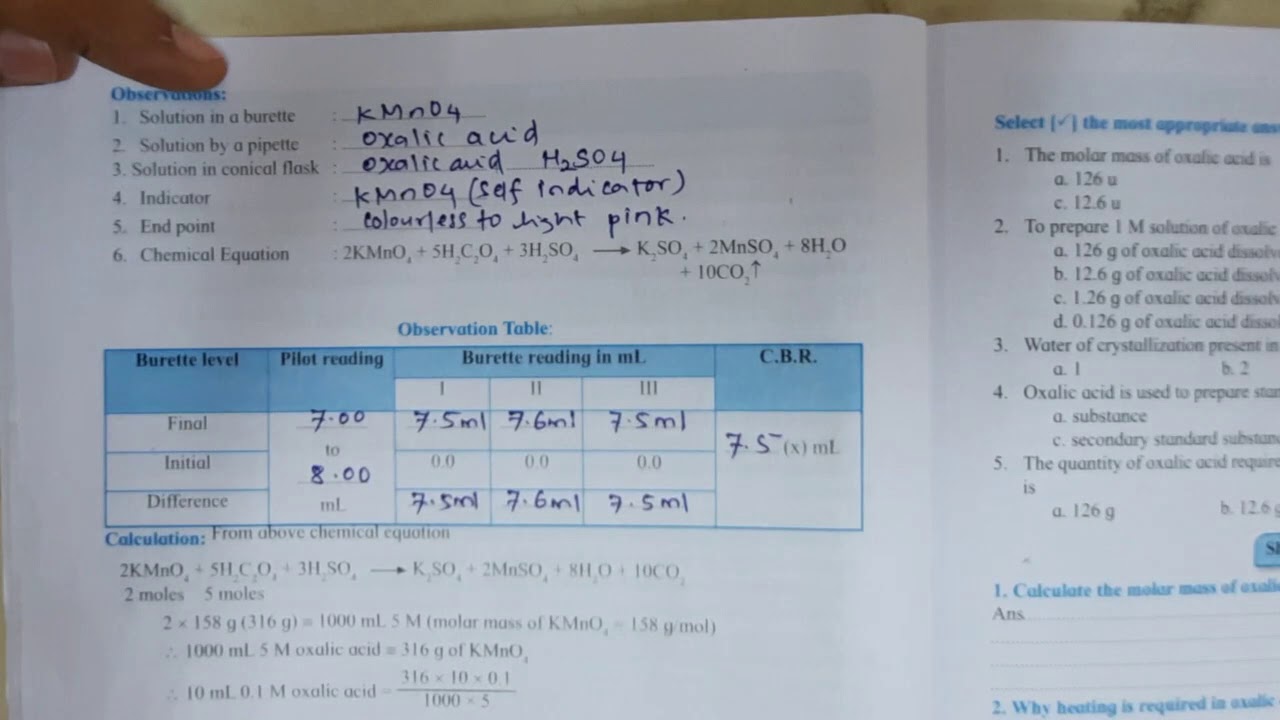 Observations:
1. Solution in a burette : KMnO4
2. Solution by a pipette : oxalic acid
3. Solution in conical flask : oxalic acid H2SO4
4. Indicator : KMnO4 (self indicator)
5. End point : colourless to light pink.
6. Chemical Equation : 2KMnO₄ + 5H₂C₂O₄ + 3H₂SO₄ ⟶ K₂SO₄ + 2MnSO₄ + 8H₂O
+ 10CO₂↑
Observation Table:
Burette level Pilot reading Burette reading in mL C.B.R.
I II III
Final 7.00 7.5ml 7.6ml 7.5ml
to 7.5 (x) mL
Initial 8.00 0.0 0.0 0.0
Difference mL 7.5ml 7.6ml 7.5ml
Calculation: From above chemical equation
2KMnO₄ + 5H₂C₂O₄ + 3H₂SO₄ ⟶ K₂SO₄ + 2MnSO₄ + 8H₂O + 10CO₂
2 moles 5 moles
2 × 158 g (316 g) = 1000 mL 5 M (molar mass of KMnO₄ = 158 g/mol)
∴ 1000 mL 5 M oxalic acid ≡ 316 g of KMnO₄
∴ 10 mL 0.1 M oxalic acid = 316 × 10 × 0.1
1000 × 5
Select [✓] the most appropriate
1. The molar mass of oxalic acid is
a. 126 u
c. 12.6 u
2. To prepare 1 M solution of oxalic
a. 126 g of oxalic acid
b. 12.6 g of oxalic acid
c. 1.26 g of oxalic acid
d. 0.126 g of oxalic acid
3. Water of crystallization present in
a. 1 b. 2
4. Oxalic acid is used to prepare
a. substance
c. secondary standard
5. The quantity of oxalic acid
is
a. 126 g b. 12.6
1. Calculate the molar mass of
Ans.
2. Why heating is required in oxalic